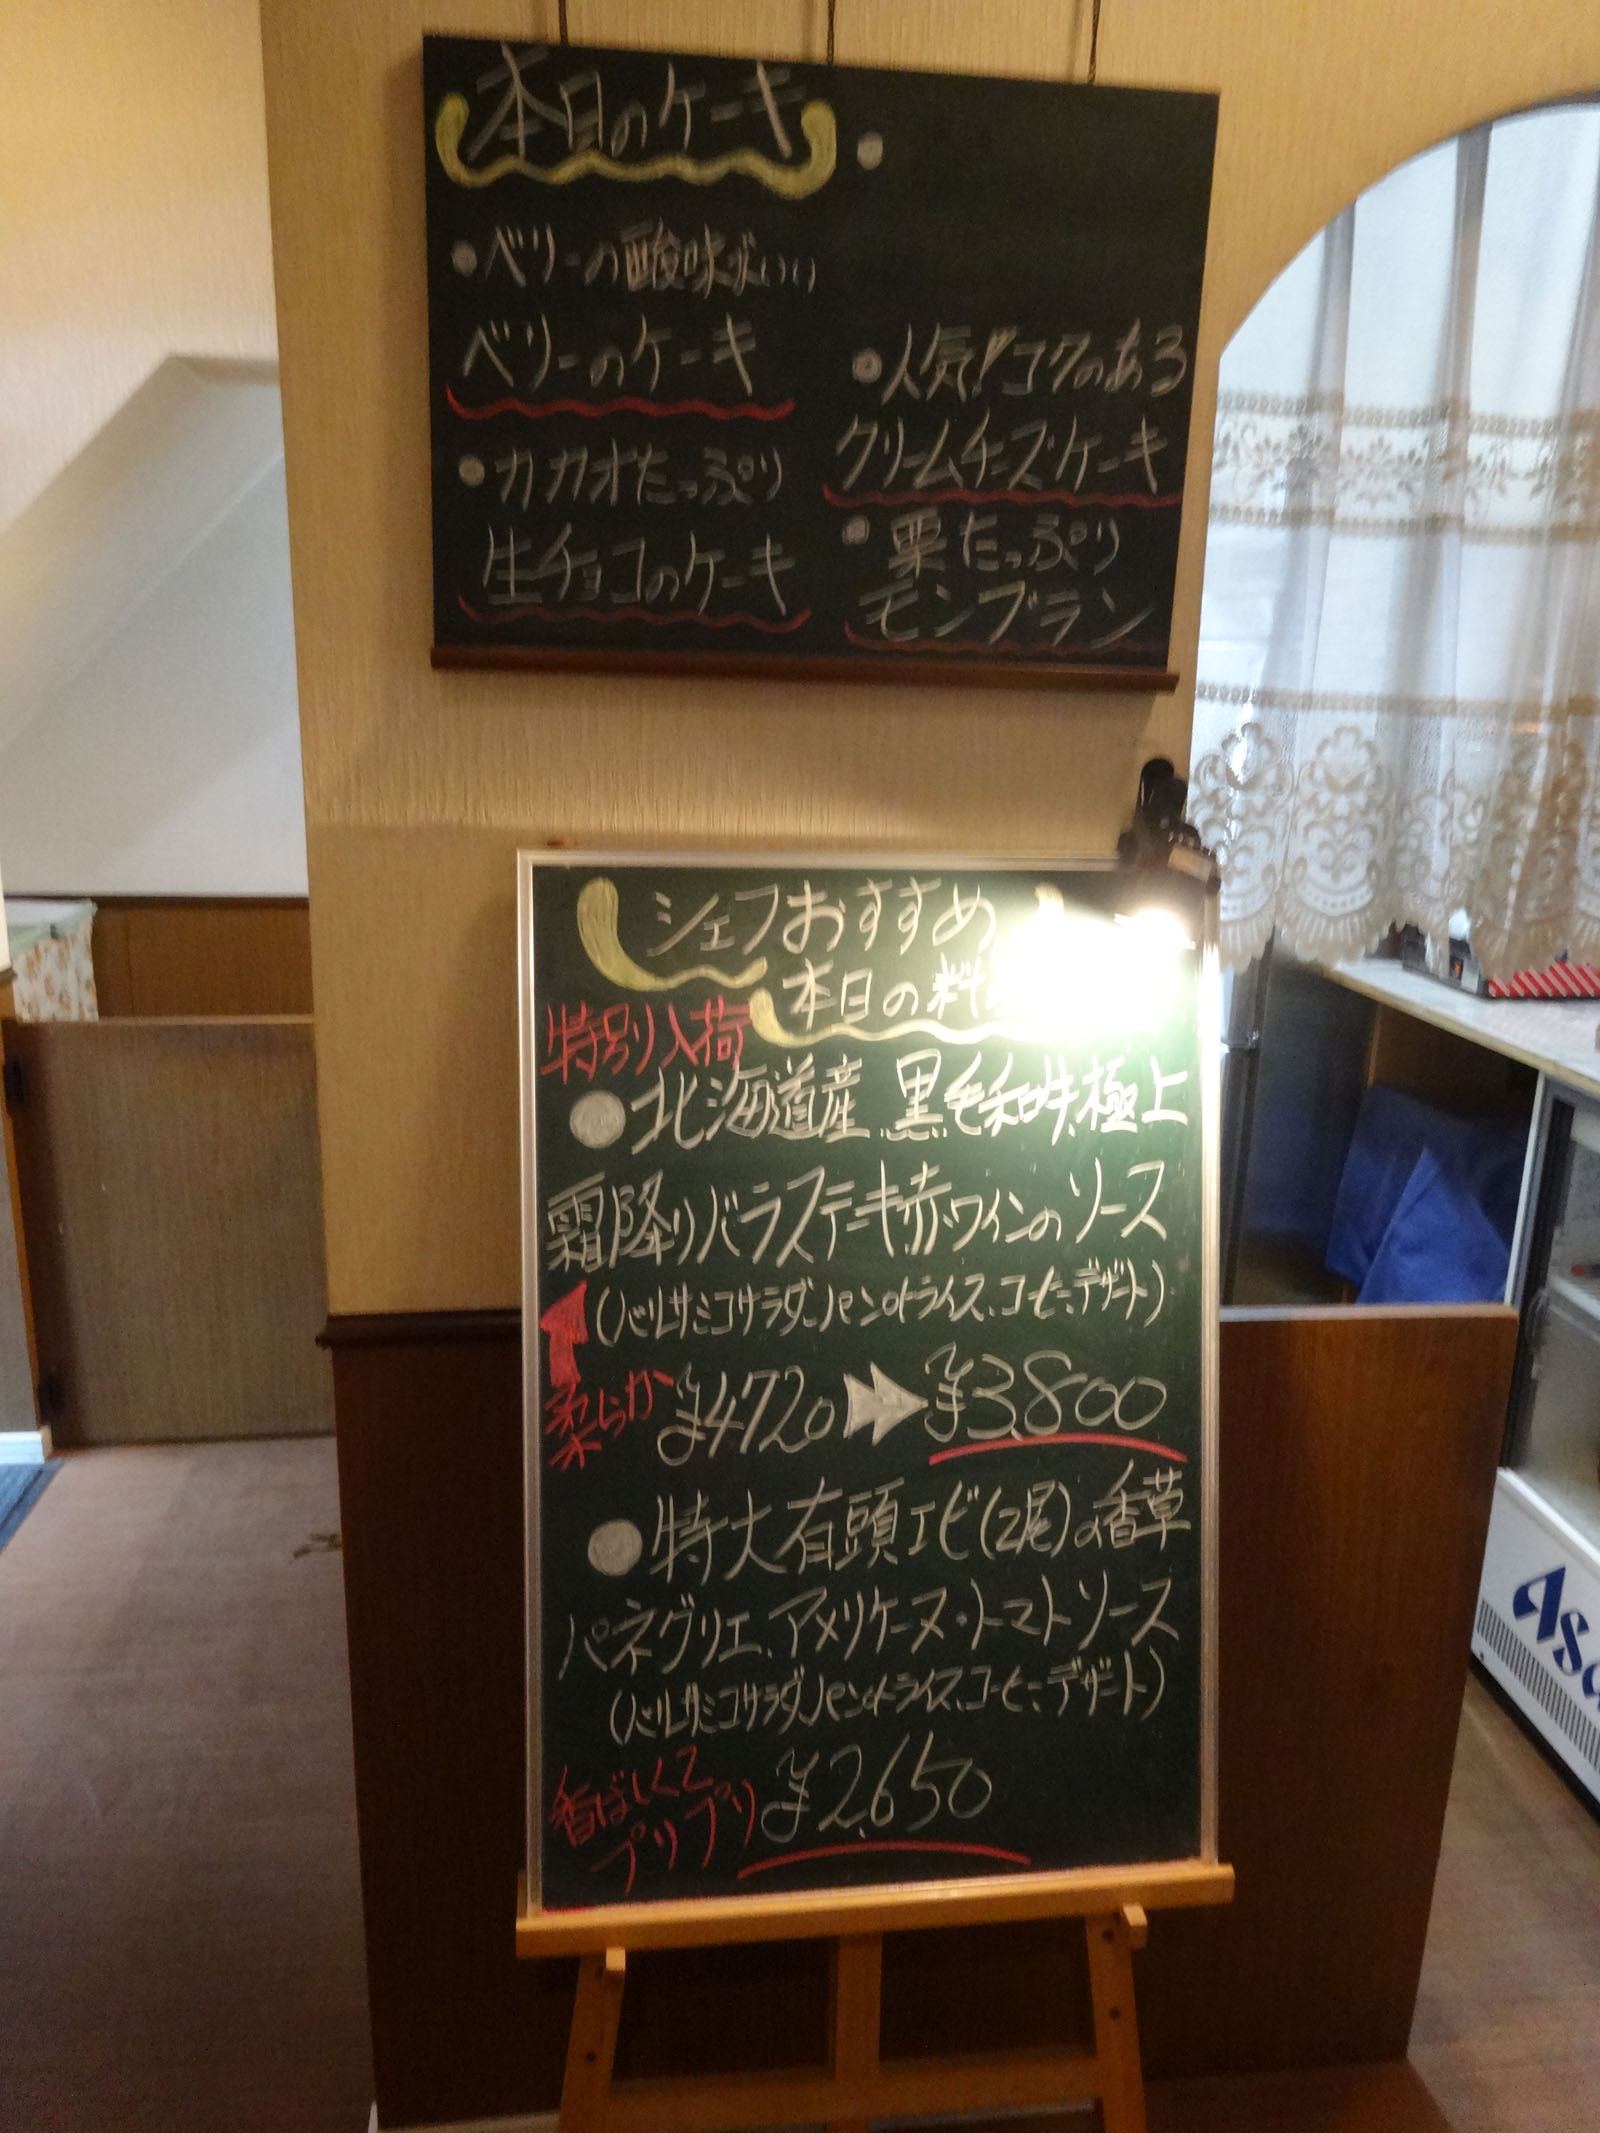 本日のケーキ
・ベリーの酸味がいい
ベリーのケーキ
・カカオたっぷり
生チョコのケーキ
・人気!コクのある
クリームチーズケーキ
・栗たっぷり
モンブラン
シェフおすすめ
本日の料
特別入荷
●北海道産 黒毛和牛極上
霜降りバラステーキ赤ワインのソース
(バルサミコサラダ、パンorライス、コーヒー、デザート)
柔らか ¥4720 ¥3,800
●特大有頭エビ(2尾)の香草
パネグリエ、アメリケーヌ・トマトソース
(バルサミコサラダ、パンorライス、コーヒー、デザート)
香ばしくて
プリプリ ¥2,650
As